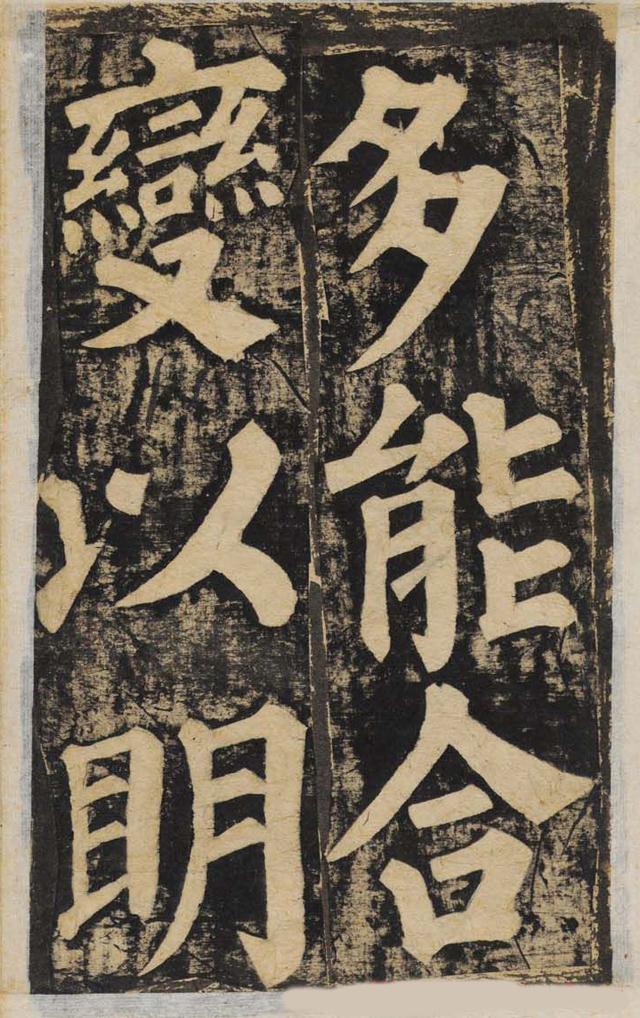 多能合
變以明